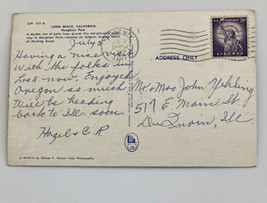 LONG BEACH, CALIFORNIA
Houghton Park
July 5
Having a nice visit
with the folks in
now. Enjoyed
Oregon so much
Will be heading
back to Ill soon
Hazel & C.R.
ADDRESS ONLY
Mr & Mrs John Yehling
517 E Main St
Du Quoin, Ill